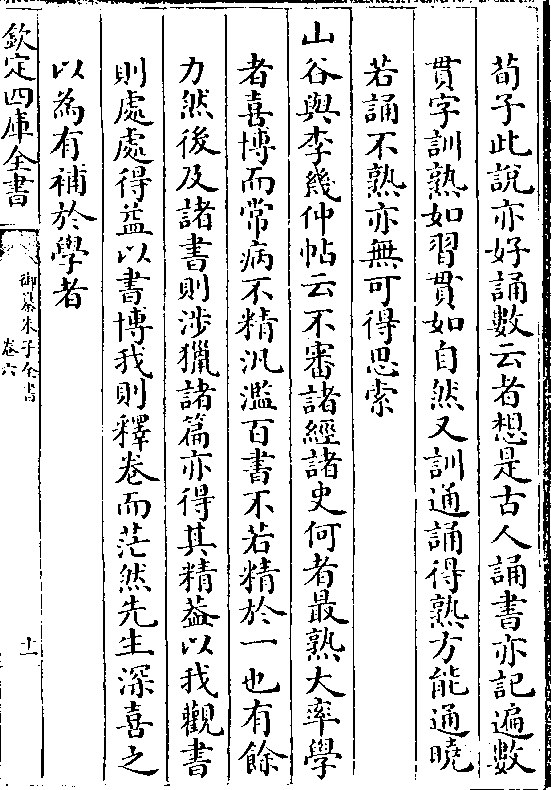 荀子此說亦好誦數云者想是古人誦書亦記遍數
貫字訓熟如習貫如自然又訓通誦得熟方能通曉
若誦不熟亦無可得思索
山谷與李幾仲帖云不審諸經諸史何者最熟大率學
者喜博而常病不精汎濫百書不若精於一也有餘
力然後及諸書則涉獵諸篇亦得其精葢以我觀書
則處處得益以書博我則釋卷而茫然先生深喜之
以為有補於學者
欽定四庫全書
御纂朱子全書
卷六
十一